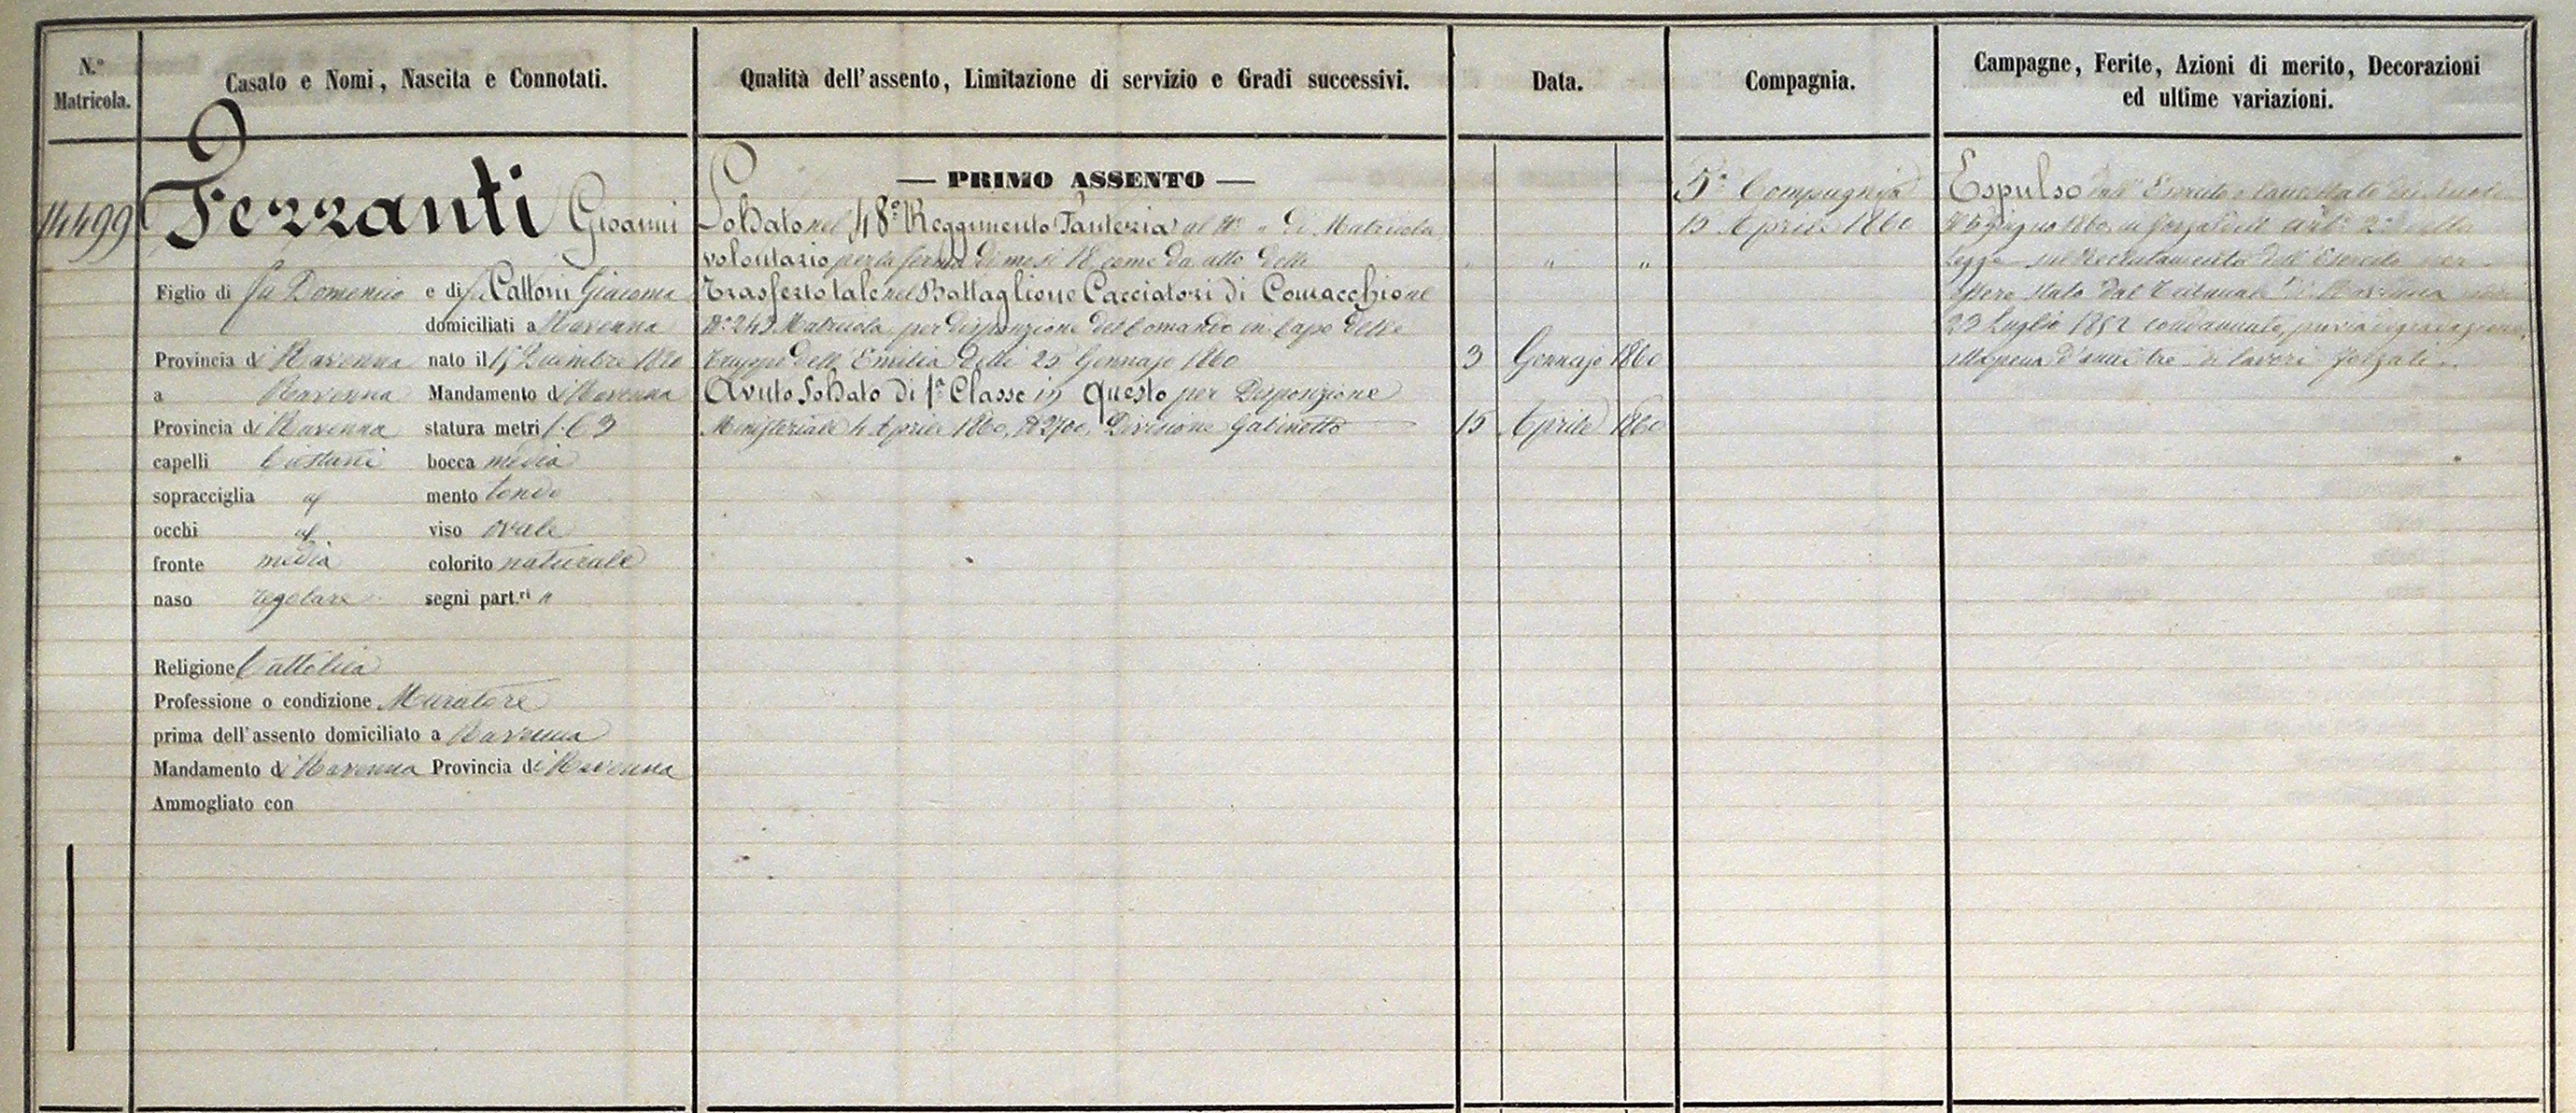 N.º Matricola.
Casato e Nomi, Nascita e Connotati.
Qualità dell'assento, Limitazione di servizio e Gradi successivi.
Data.
Compagnia.
Campagne, Ferite, Azioni di merito, Decorazioni
ed ultime variazioni.
14499
Ferranti Giovanni
Figlio di fu Domenico e di fu Cattoni Giacoma
domiciliati a Ravenna
Provincia di Ravenna nato il 15 Dicembre 1820
a Ravenna Mandamento di Ravenna
Provincia di Ravenna statura metri 1.63
capelli Castani bocca media
sopracciglia id mento tondo
occhi id viso ovale
fronte media colorito naturale
naso regolare segni part.ri "
Religione Cattolica
Professione o condizione Muratore
prima dell'assento domiciliato a Ravenna
Mandamento di Ravenna Provincia di Ravenna
Ammogliato con
— PRIMO ASSENTO —
Soldato nel 48º Reggimento Fanteria al Nº " di Matricola
volontario per la ferma di mesi 18 come da atto delli " " "
Trasferto tale nel Battaglione Cacciatori di Comacchio al
Nº 243 Matricola, per disposizione del Comando in Capo delle
Truppe dell'Emilia delli 25 Gennajo 1860 3 Gennajo 1860
Avuto Soldato di 1ª Classe in questo per Disposizione
Ministeriale 4 Aprile 1860, Nº 2700, Divisione Gabinetto 15 Aprile 1860
5ª Compagnia
15 Aprile 1860
Espulso dall'Esercito e cancellato dai Ruoli
il 5 giugno 1860, in forza dell' art. 2º della
Legge sul Reclutamento dell'Esercito per
essere stato dal Tribunale di Ravenna
23 Luglio 1852 condannato, previa degradazione,
alla pena d'anni tre di lavori forzati.